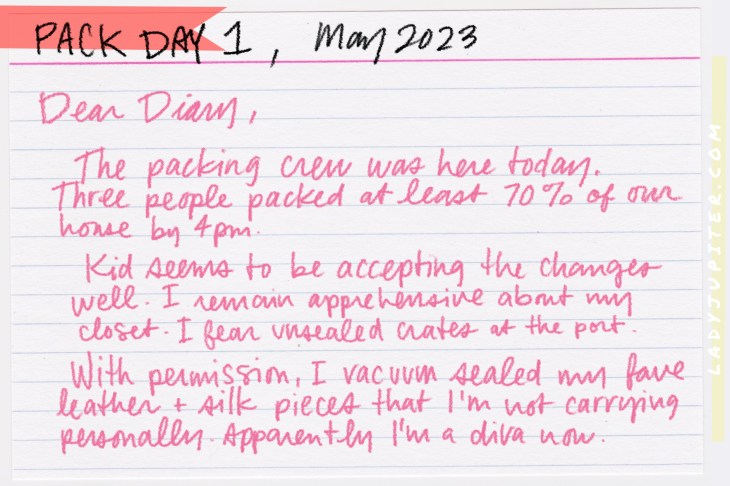 PACK DAY 1, May 2023
Dear Diary,
The packing crew was here today.
Three people packed at least 70% of our
house by 4pm.
Kid seems to be accepting the changes
well. I remain apprehensive about my
closet. I fear unsealed crates at the port.
With permission, I vacuum sealed my fave
leather + silk pieces that I'm not carrying
personally. Apparently I'm a diva now.
LADYJUPITER.COM